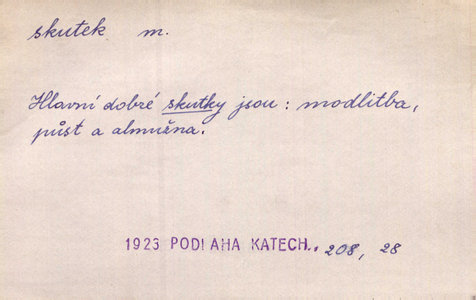 skutek m.
Hlavní dobré skutky jsou: modlitba,
půst a almužna.
1923 PODLAHA KATECH., 208, 28